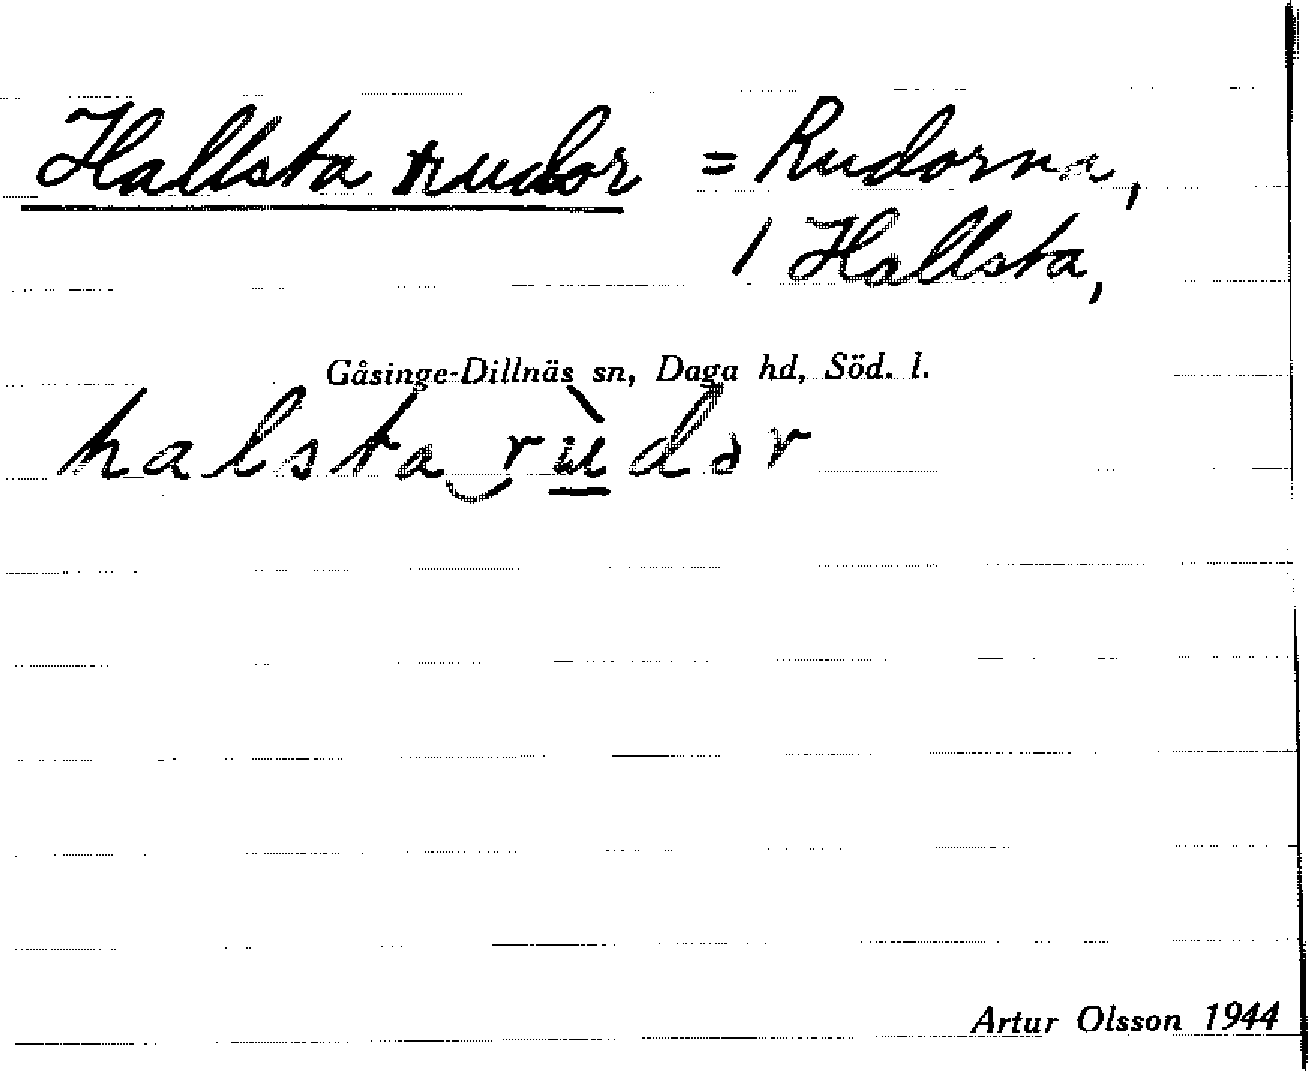 Hallsta rudor = Rudorna,
/ Hallsta,
Gåsinge-Dillnäs sn, Daga hd, Söd. l.
halsta‿rùdər
Artur Olsson 1944